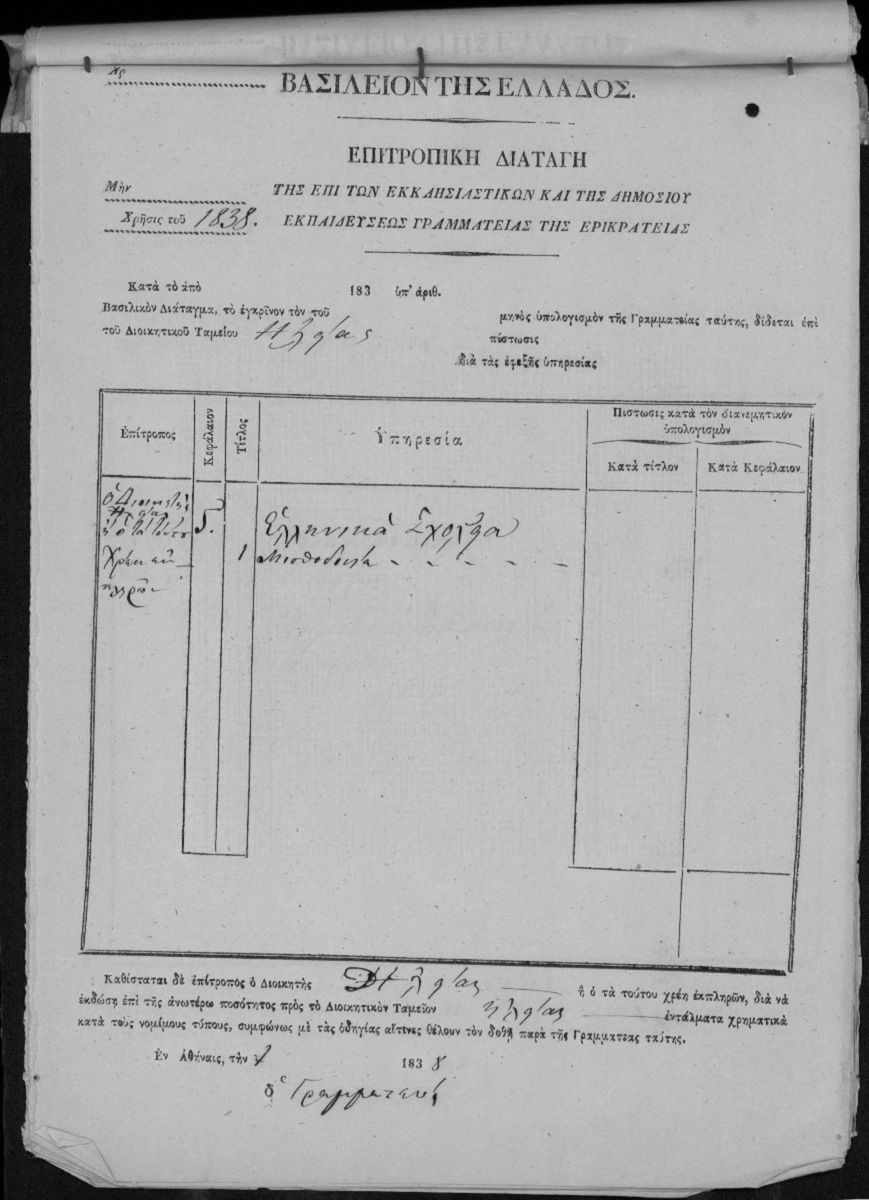 ΒΑΣΙΛΕΙΟΝ ΤΗΣ ΕΛΛΑΔΟΣ.
ΕΠΙΤΡΟΠΙΚΗ ΔΙΑΤΑΓΗ
ΤΗΣ ΕΠΙ ΤΩΝ ΕΚΚΛΗΣΙΑΣΤΙΚΩΝ ΚΑΙ ΤΗΣ ΔΗΜΟΣΙΟΥ
ΕΚΠΑΙΔΕΥΣΕΩΣ ΓΡΑΜΜΑΤΕΙΑΣ ΤΗΣ ΕΡΙΚΡΑΤΕΙΑΣ
Μὴν
Χρῆσις τοῦ 1838.
Κατὰ τὸ ἀπὸ 183 ὑπ' ἀριθ.
Βασιλικὸν Διάταγμα, τὸ ἐγκρῖνον τὸν τοῦ μηνὸς ὑπολογισμὸν τῆς Γραμματείας ταύτης, δίδεται ἐπὶ
τοῦ Διοικητικοῦ Ταμείου Ηλείας πίστωσις
διὰ τὰς ἐφεξῆς ὑπηρεσίας
Ἐπίτροπος
Κεφάλαιον
Τίτλος
Ὑπηρεσία
Πίστωσις κατὰ τὸν διανεμητικὸν
ὑπολογισμὸν
Κατὰ τίτλον
Κατὰ Κεφάλαιον
ὁ Διοικητὴς
Ηλείας
ἢ ὁ τὰ τούτου
χρέη ἐκ
πληρῶν
5.
Ἑλληνικὰ Σχολεῖα
1 Μισθοδοσία
Καθίσταται δὲ ἐπίτροπος ὁ Διοικητὴς Ηλείας ἢ ὁ τὰ τούτου χρέη ἐκπληρῶν, διὰ νὰ
ἐκδώσῃ ἐπὶ τῆς ἀνωτέρω ποσότητος πρὸς τὸ Διοικητικὸν Ταμεῖον Ηλείας ἐντάλματα χρηματικὰ
κατὰ τοὺς νομίμους τύπους, συμφώνως μὲ τὰς ὁδηγίας αἵτινες θέλουν τὸν δοθῆ παρὰ τῆς Γραμματείας ταύτης.
Ἐν Ἀθήναις, τὴν 1838
ὁ Γραμματεύς